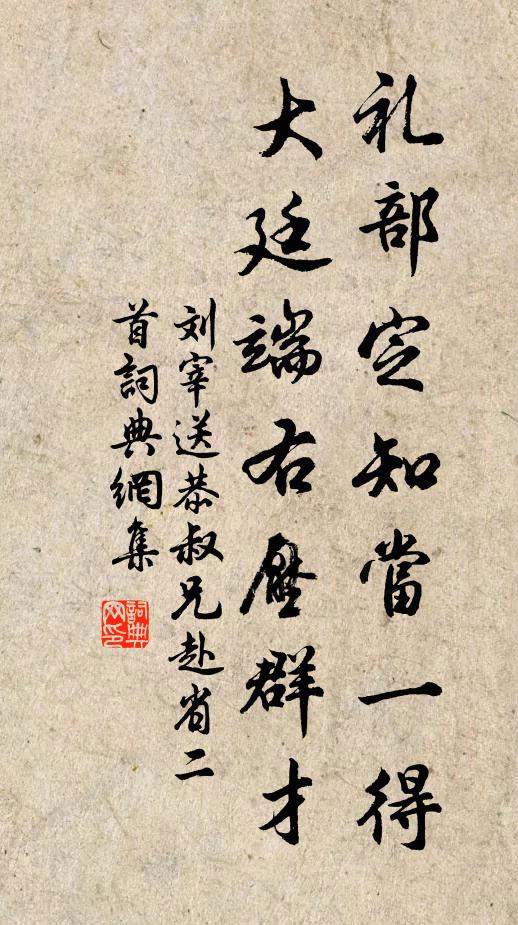 礼部定知當一得
大廷端右壓群才
刘宰送恭叔兄赴省二
首詞典網集
詞典网印